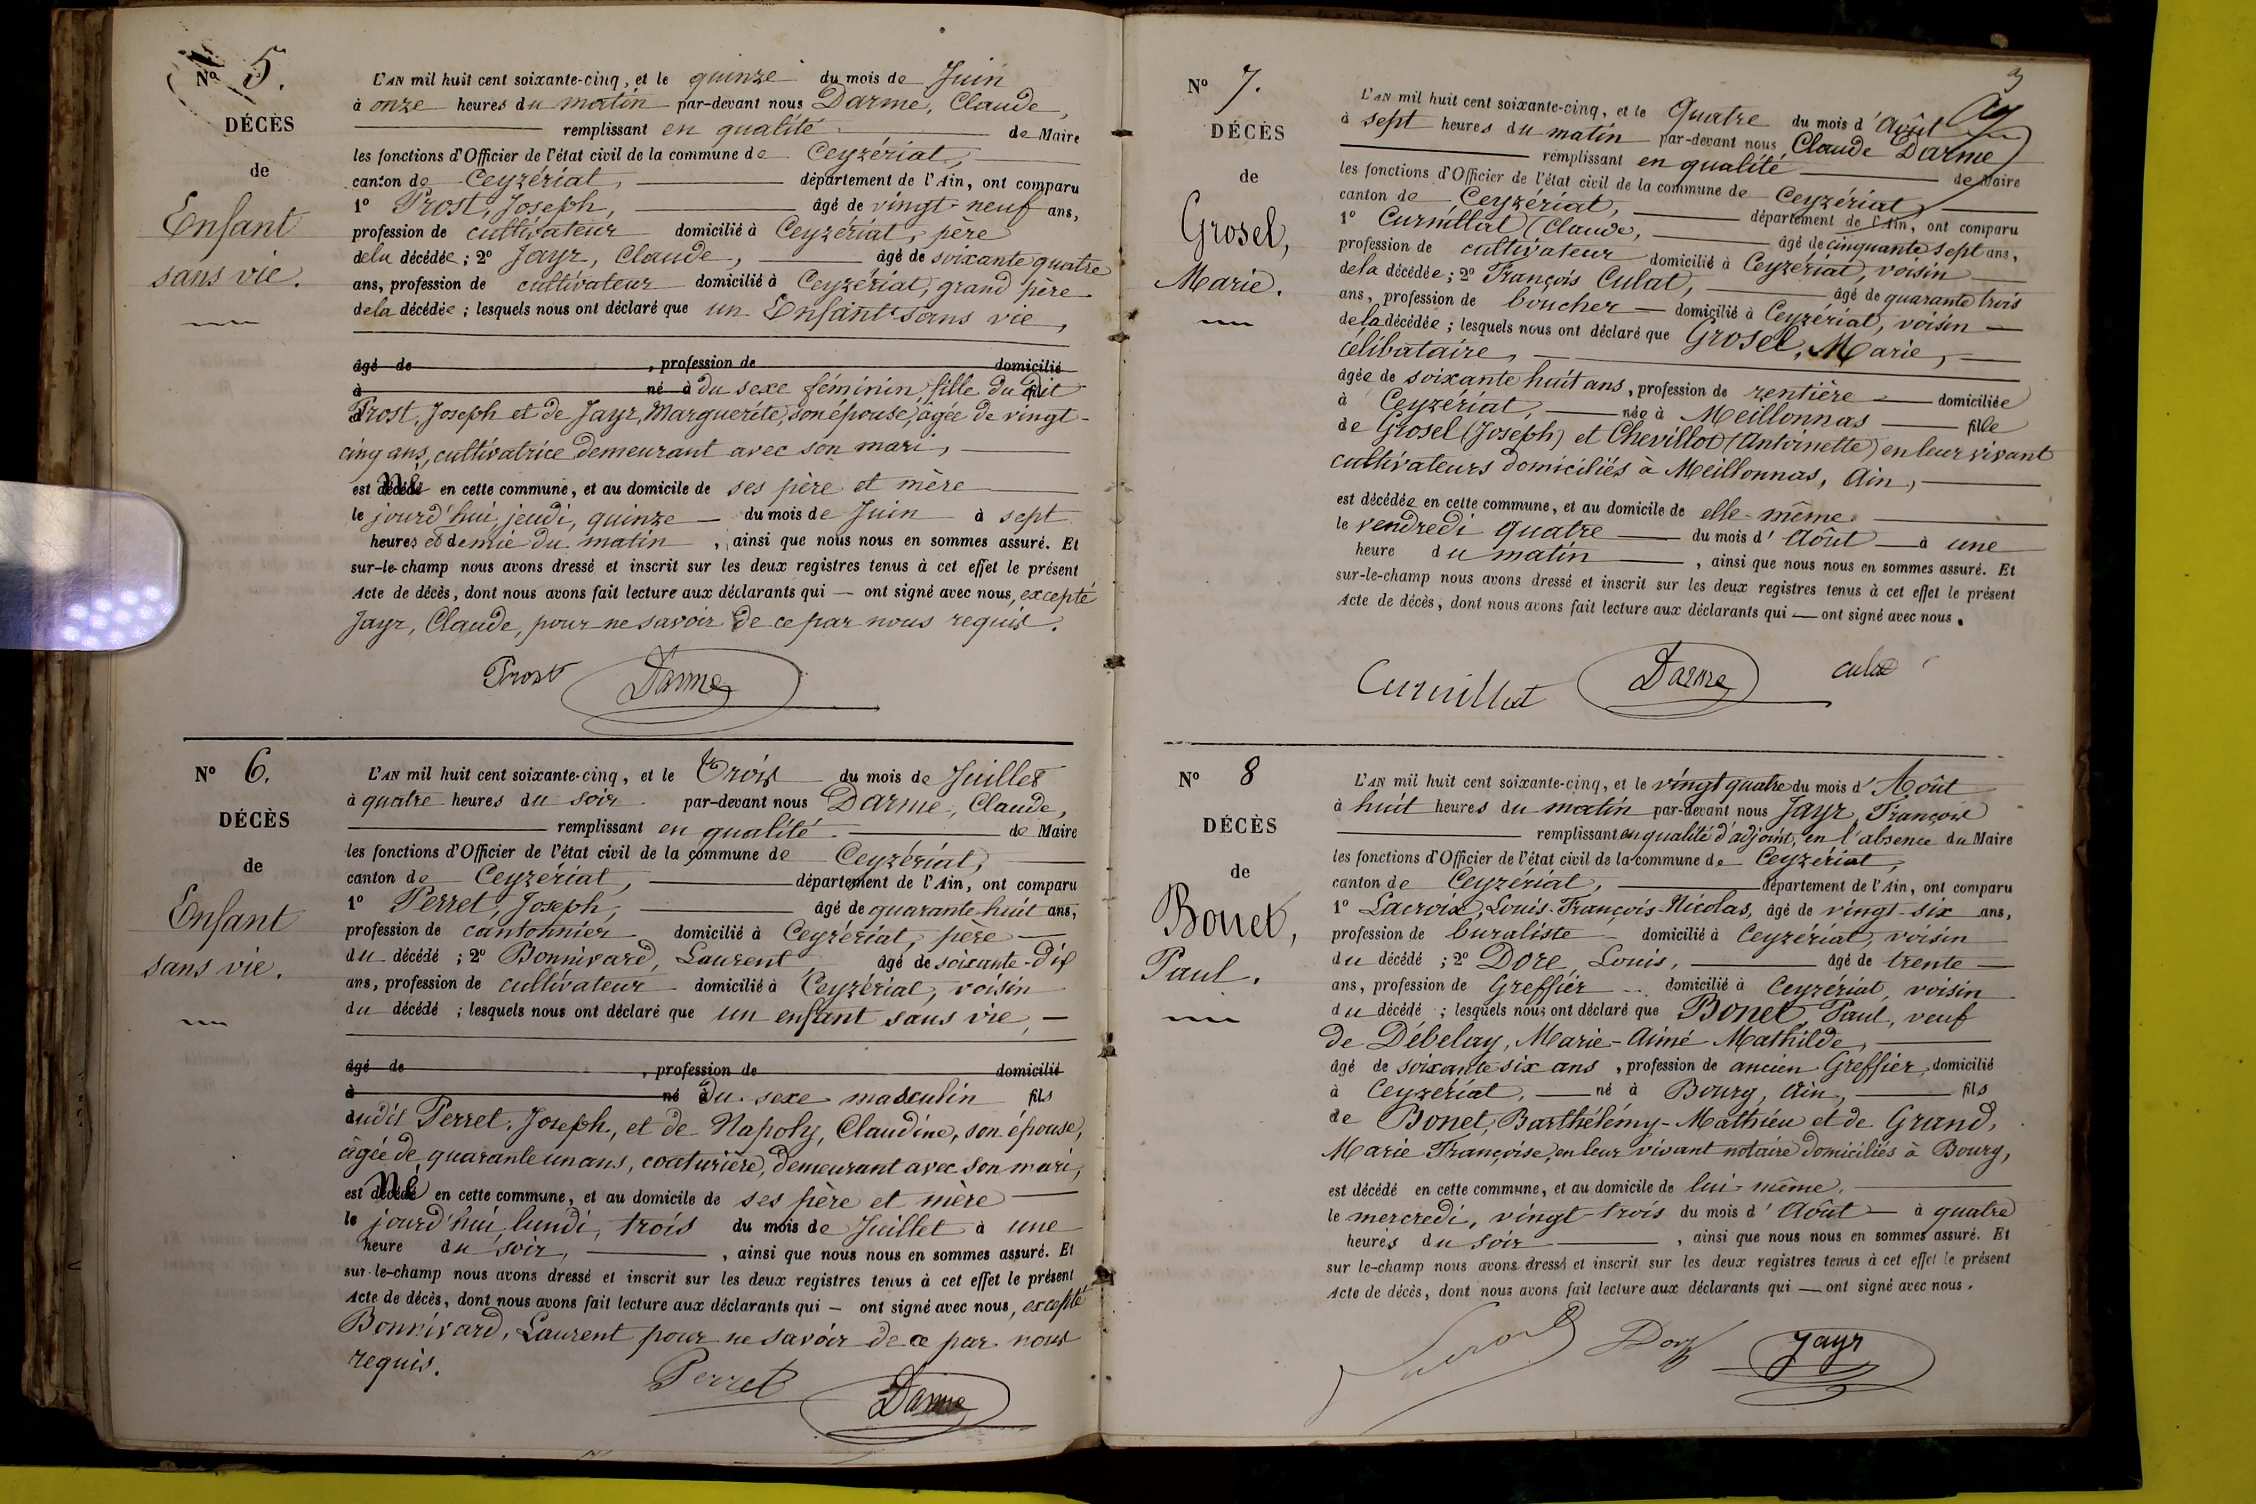 Nº 5.
DÉCÈS
de
Enfant
sans vie.
L'AN mil huit cent soixante-cinq, et le quinze du mois de Juin
à onze heures du matin par-devant nous Darme, Claude,
remplissant en qualité de Maire
les fonctions d'Officier de l'état civil de la commune de Ceyzériat,
canton de Ceyzériat, département de l'Ain, ont comparu
1º Prost, Joseph, âgé de vingt-neuf ans,
profession de cultivateur domicilié à Ceyzériat, père
dela décédée ; 2º Jayr, Claude, âgé de soixante quatre
ans, profession de cultivateur domicilié à Ceyzériat, grand père
dela décédée ; lesquels nous ont déclaré que un Enfant sans vie,
âgé de , profession de domicilié
à né à du sexe féminin, fille du dit
Prost, Joseph et de Jayr, Marguerite, son épouse, âgée de vingt-
cinq ans, cultivatrice demeurant avec son mari,
est Né en cette commune, et au domicile de ses père et mère
le jourd'hui, jeudi, quinze du mois de Juin à sept
heures et demie du matin , ainsi que nous nous en sommes assuré. Et
sur-le-champ nous avons dressé et inscrit sur les deux registres tenus à cet effet le présent
Acte de décès, dont nous avons fait lecture aux déclarants qui — ont signé avec nous, excepté
Jayr, Claude, pour ne savoir de ce par nous requis.
Prost Darme
Nº 6.
DÉCÈS
de
Enfant
sans vie.
L'AN mil huit cent soixante-cinq, et le Trois du mois de Juillet
à quatre heures du soir par-devant nous Darme, Claude,
remplissant en qualité de Maire
les fonctions d'Officier de l'état civil de la commune de Ceyzériat,
canton de Ceyzériat, département de l'Ain, ont comparu
1º Perret, Joseph, âgé de quarante-huit ans,
profession de cantonnier domicilié à Ceyzériat, père
du décédé ; 2º Bonnivard, Laurent âgé de soixante-dix
ans, profession de cultivateur domicilié à Ceyzériat, voisin
du décédé ; lesquels nous ont déclaré que un enfant sans vie,
âgé de , profession de domicilié
à né à Du sexe masculin fils
dudit Perret, Joseph, et de Napoly, Claudine, son épouse,
âgée de quarante un ans, couturière, demeurant avec son mari,
est Né en cette commune, et au domicile de ses père et mère
le jourd'hui, lundi, trois du mois de Juillet à une
heure du soir, , ainsi que nous nous en sommes assuré. Et
sur-le-champ nous avons dressé et inscrit sur les deux registres tenus à cet effet le présent
Acte de décès, dont nous avons fait lecture aux déclarants qui — ont signé avec nous, excepté
Bonnivard, Laurent pour ne savoir de ce par nous
requis.
Perret
Darme
Nº 7.
DÉCÈS
de
Grosel,
Marie.
3
L'AN mil huit cent soixante-cinq, et le Quatre du mois d'Août
à sept heures du matin par-devant nous Claude Darme
remplissant en qualité de Maire
les fonctions d'Officier de l'état civil de la commune de Ceyzériat,
canton de Ceyzériat, département de l'Ain, ont comparu
1º Curnillat (Claude, âgé de cinquante sept ans,
profession de cultivateur domicilié à Ceyzériat, voisin
dela décédée ; 2º François Culat, âgé de quarante trois
ans, profession de boucher domicilié à Ceyzériat, voisin
dela décédée ; lesquels nous ont déclaré que Grosel, Marie,
célibataire,
âgée de soixante huit ans, profession de rentière domiciliée
à Ceyzériat, née à Meillonnas fille
de Grosel (Joseph) et Chevillot (Antoinette) en leur vivant
cultivateurs domiciliés à Meillonnas, Ain,
est décédée en cette commune, et au domicile de elle-même
le vendredi quatre du mois d'Août à une
heure du matin , ainsi que nous nous en sommes assuré. Et
sur-le-champ nous avons dressé et inscrit sur les deux registres tenus à cet effet le présent
Acte de décès, dont nous avons fait lecture aux déclarants qui — ont signé avec nous.
Curnillat Darme Culat
Nº 8
DÉCÈS
de
Bonet,
Paul.
L'AN mil huit cent soixante-cinq, et le vingt quatre du mois d'Août
à huit heures du matin par-devant nous Jayr, François
remplissant en qualité d'adjoint, en l'absence du Maire
les fonctions d'Officier de l'état civil de la commune de Ceyzériat,
canton de Ceyzériat, département de l'Ain, ont comparu
1º Lacroix, Louis-François-Nicolas, âgé de vingt-six ans,
profession de buraliste domicilié à Ceyzériat, voisin
du décédé ; 2º Dore, Louis, âgé de trente
ans, profession de Greffier domicilié à Ceyzériat, voisin
du décédé ; lesquels nous ont déclaré que Bonet, Paul, veuf
de Débelay, Marie-Aimé Mathilde,
âgé de soixante six ans, profession de ancien Greffier, domicilié
à Ceyzériat, né à Bourg, Ain, fils
de Bonet, Barthélémy-Mathieu et de Grand,
Marie Françoise, en leur vivant notaire domiciliés à Bourg,
est décédé en cette commune, et au domicile de lui-même,
le mercredi, vingt-trois du mois d'Août à quatre
heures du soir , ainsi que nous nous en sommes assuré. Et
sur le-champ nous avons dressé et inscrit sur les deux registres tenus à cet effet le présent
Acte de décès, dont nous avons fait lecture aux déclarants qui — ont signé avec nous.
Jayr